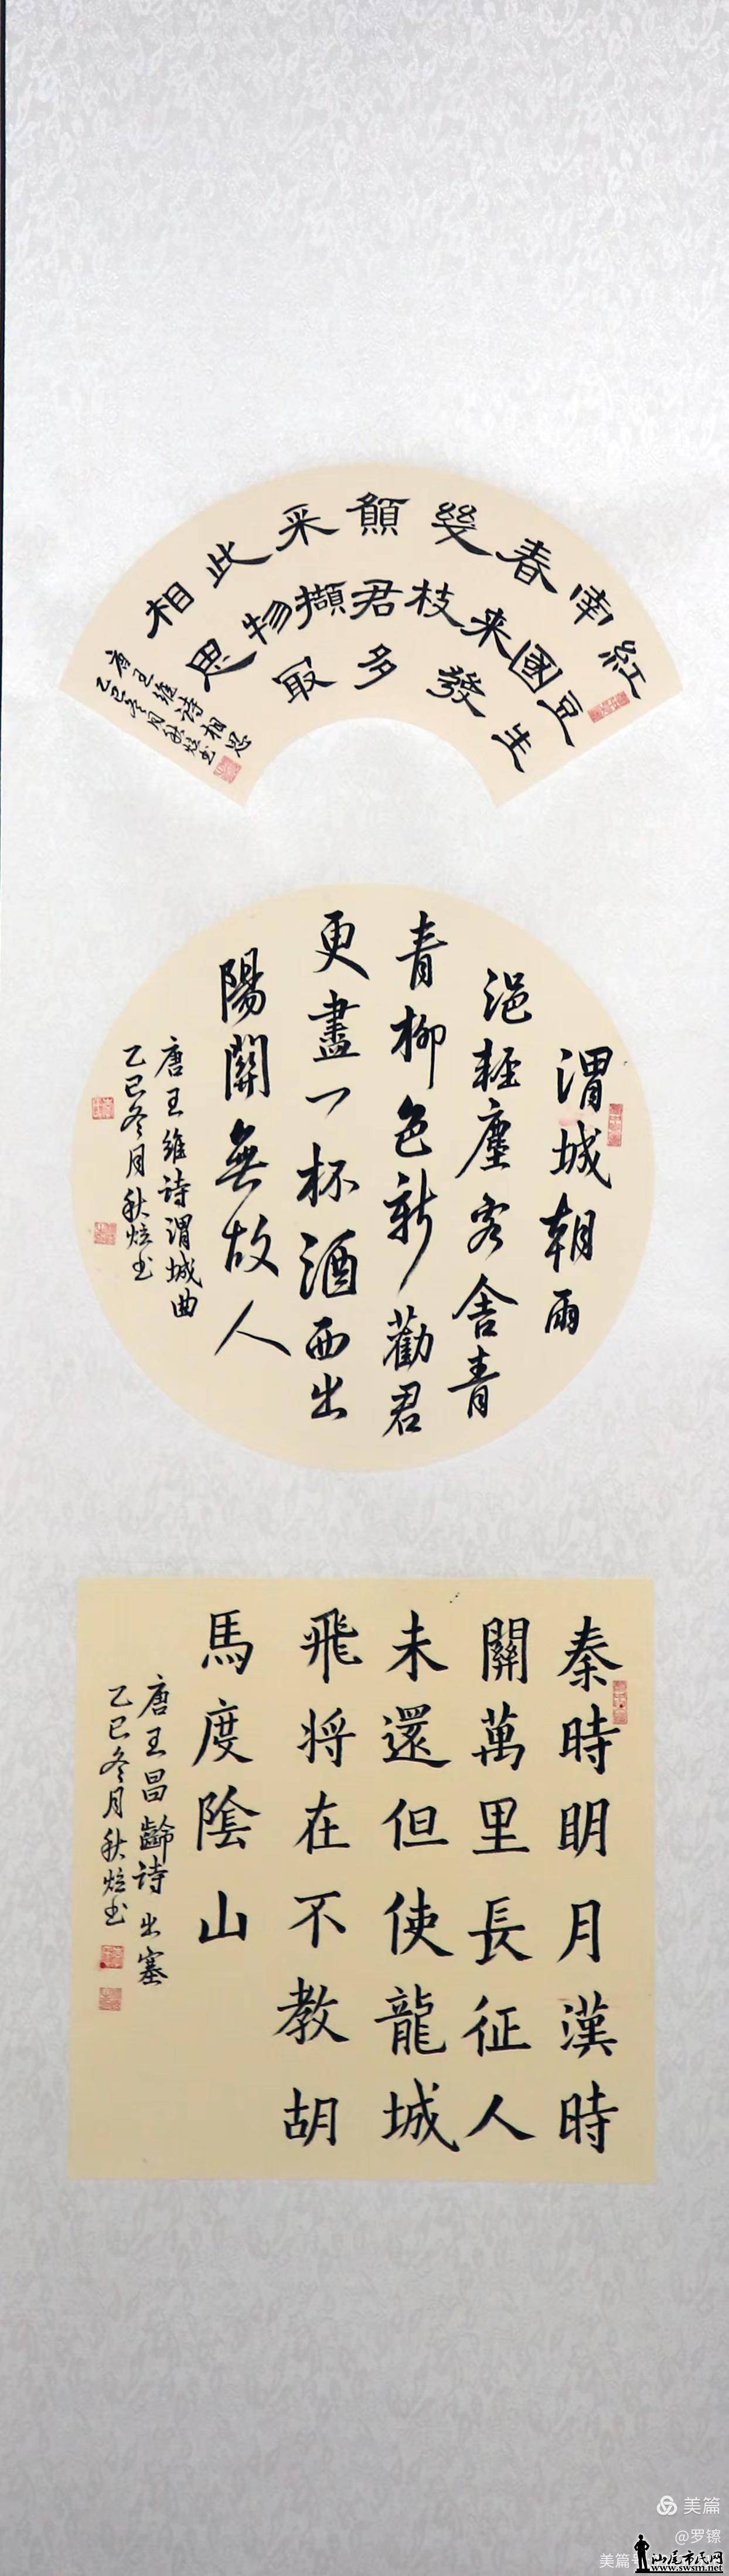 紅豆
南國生
春来發
幾枝
願君多
采擷
此物最
相思
唐王維诗相思
乙巳冬月秋炫书
渭城朝雨
浥輕塵客舍青
青柳色新勸君
更盡一杯酒西出
陽關無故人
唐王維诗渭城曲
乙巳冬月秋炫书
秦時眀月漢時
關萬里長征人
未還但使龍城
飛将在不教胡
馬度陰山
唐王昌齡诗出塞
乙巳冬月秋炫书
美篇
@罗镲
美篇
汕尾市民网
www.swsm.net